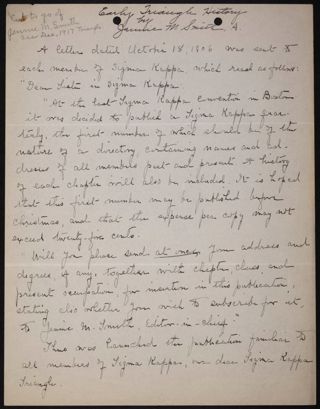 Early Triangle History
by
Jennie M. Smith, A.
go of
Jennie M. Smith
Dec. 1917 Triangle
A letter dated October 18, 1906 was sent to
each member of Sigma Kappa, which read as follows:
"Dear Sister in Sigma Kappa
"At the last Sigma Kappa Convention in Boston
it was decided to publish a Sigma Kappa quar-
terly, the first number of which should be of the
nature of a directory, containing names and ad-
dresses of all members past and present. A history
of each chapter will also be included. It is hoped
that this first number may be published before
Christmas, and that the expense per copy may not
exceed twenty-five cents.
Will you please send at once, your address and
degrees, if any, together with chapter, class, and
present occupation, for insertion in this publication,
stating also whether you wish to subscribe for it,
to Jennie M. Smith, Editor-in-chief."
Thus was launched the publication familiar to
all members of Sigma Kappa, our dear Sigma Kappa
Triangle.